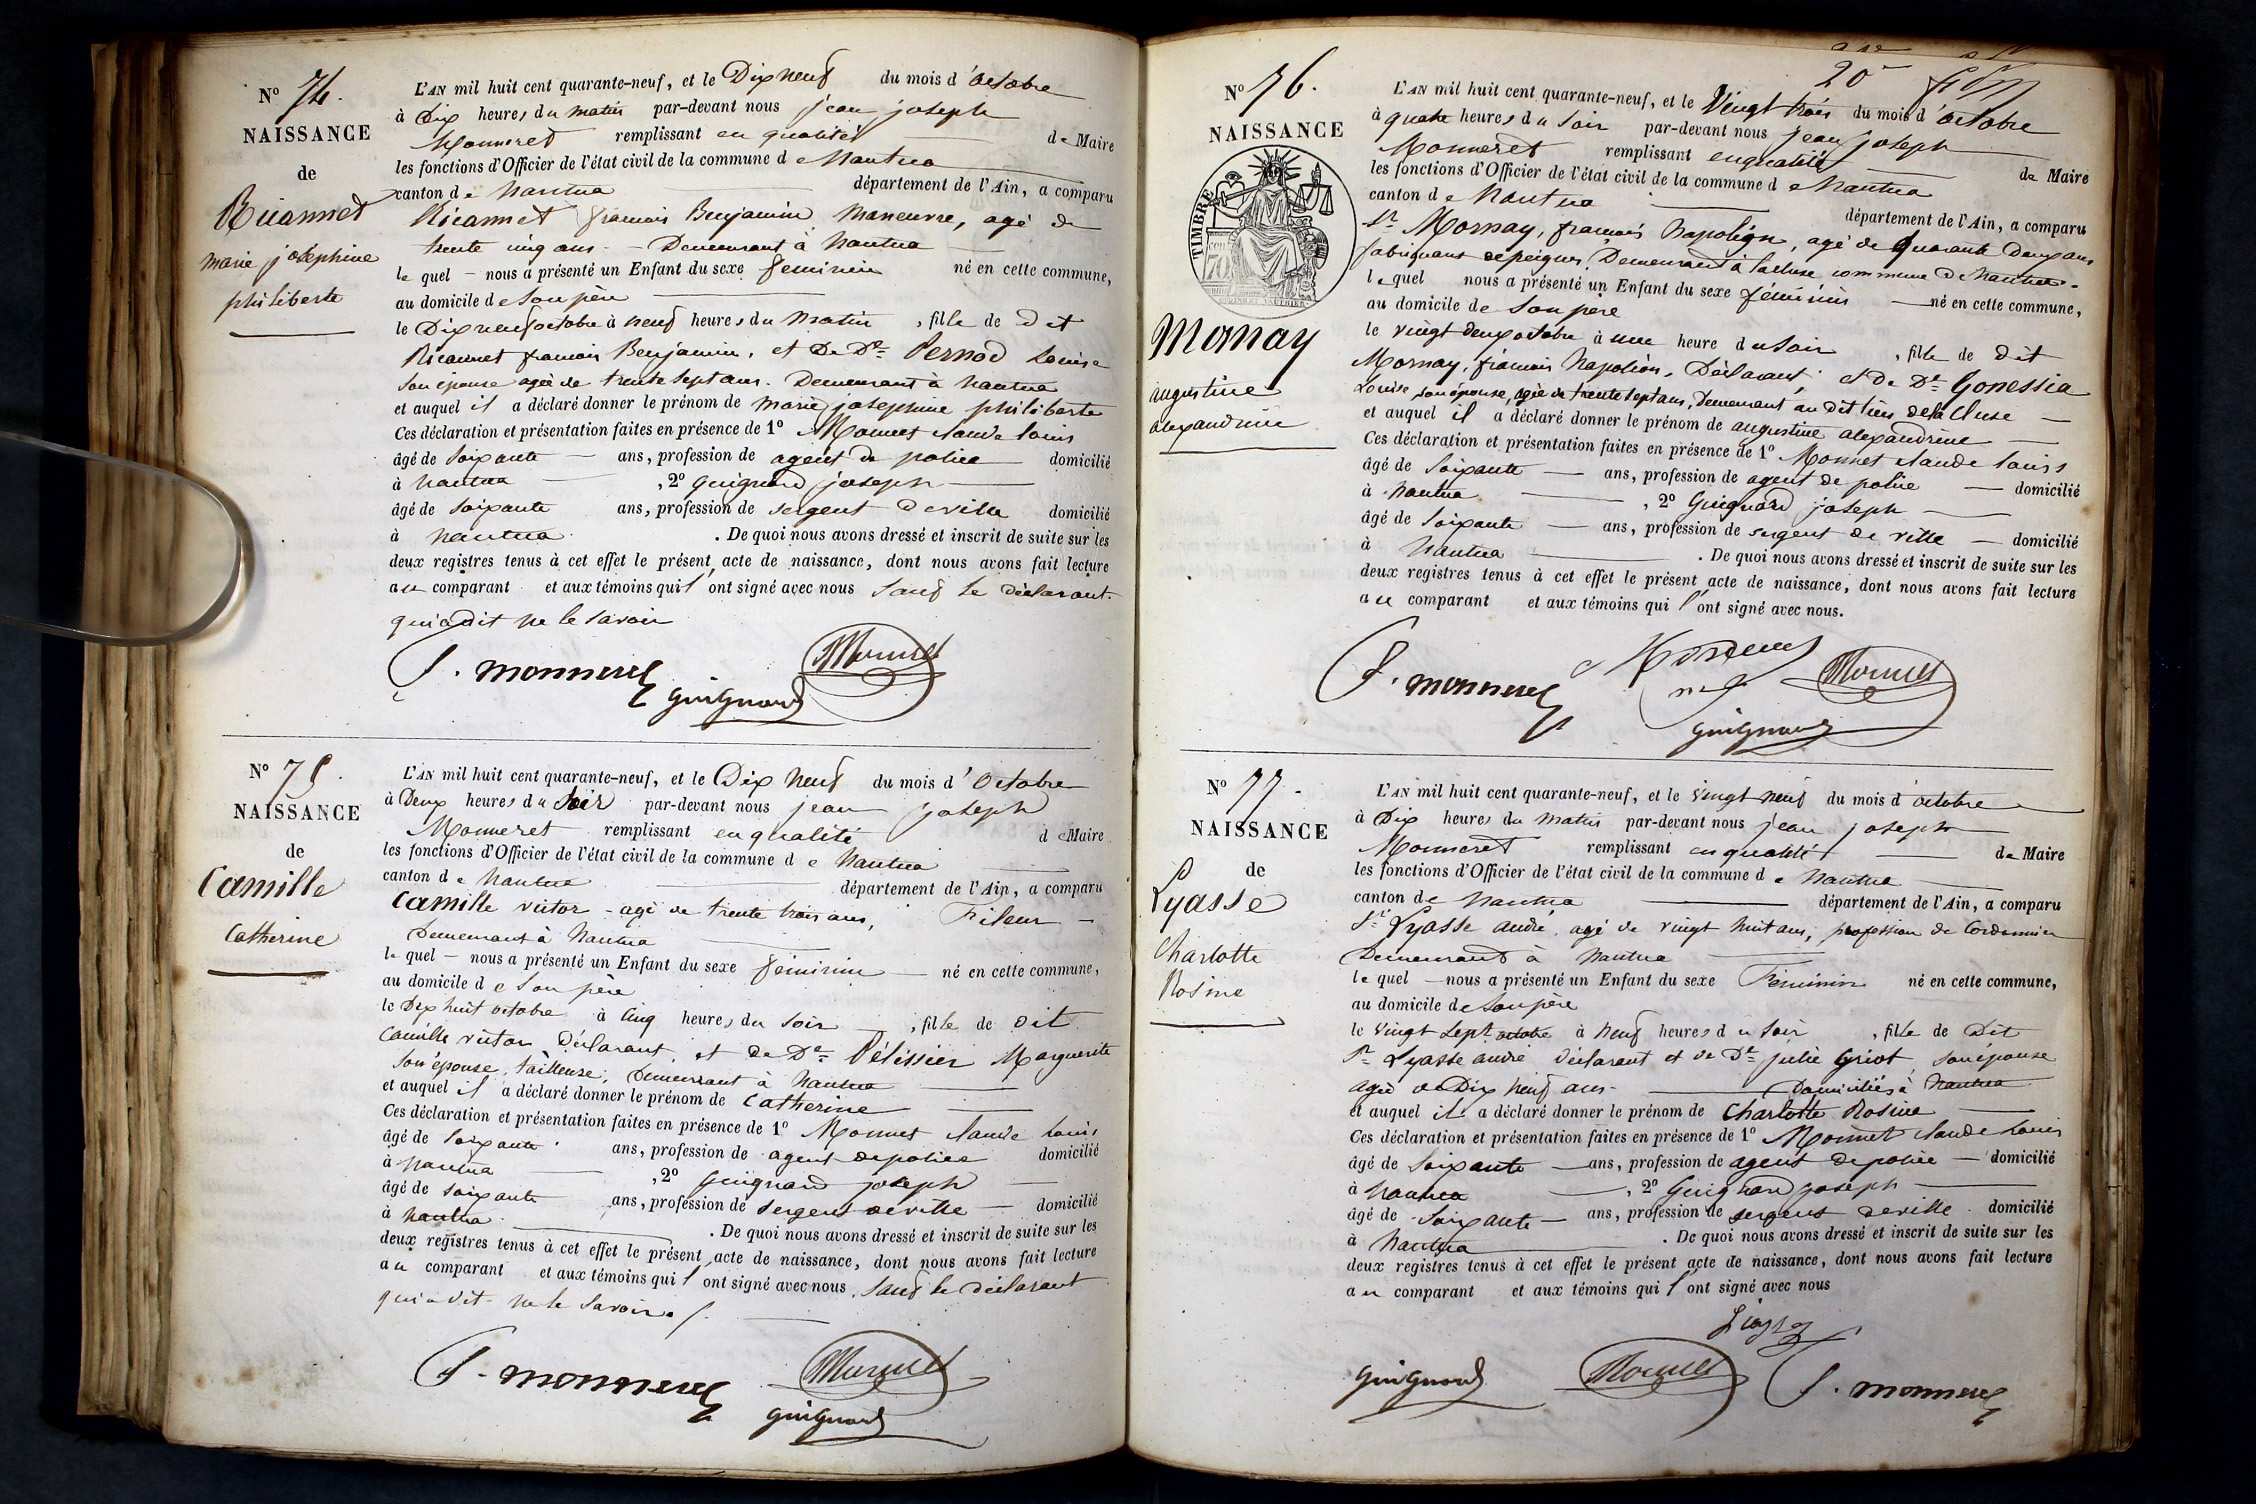 N° 74.
NAISSANCE
de
Ricannet
marie josephine
philiberte
L'AN mil huit cent quarante-neuf, et le Dix neuf du mois d'octobre
à Dix heures du matin par-devant nous jean joseph
Monneret remplissant en qualité de Maire
les fonctions d'Officier de l'état civil de la commune de Nantua
canton de Nantua département de l'Ain, a comparu
Ricannet francois Benjamin, Maneuvre, agé de
trente cinq ans - Demeurant à Nantua
le quel - nous a présenté un Enfant du sexe feminin né en cette commune,
au domicile de son père
le Dix neuf octobre à neuf heures du matin, fille de dit
Ricannet francois Benjamin, et De De Pernod Louise
son épouse agée de trente sept ans. Demeurant à Nantua
et auquel il a déclaré donner le prénom de marie josephine philiberte
Ces déclaration et présentation faites en présence de 1° Monnet claude louis
âgé de soixante - ans, profession de agent de police domicilié
à Nantua, 2° Guignard joseph
âgé de soixante ans, profession de sergent de ville domicilié
à Nantua. De quoi nous avons dressé et inscrit de suite sur les
deux registres tenus à cet effet le présent acte de naissance, dont nous avons fait lecture
au comparant et aux témoins qui l'ont signé avec nous sauf le déclarant.
qui a dit ne le savoir
J. monneret
Monnet
guignard
N° 75.
NAISSANCE
de
Camille
Catherine
L'AN mil huit cent quarante-neuf, et le Dix neuf du mois d'octobre
à Deux heures du Soir par-devant nous jean joseph
Monneret remplissant en qualité de Maire
les fonctions d'Officier de l'état civil de la commune de Nantua
canton de Nantua département de l'Ain, a comparu
Camille victor - agé de trente trois ans, Fileur -
Demeurant à Nantua
le quel - nous a présenté un Enfant du sexe feminin - né en cette commune,
au domicile de son père
le Dix huit octobre à Cinq heures du soir, fille de dit
Camille victor Déclarant, et de De Pélissier Marguerite
son épouse, tailleuse, Demeurant à Nantua
et auquel il a déclaré donner le prénom de Catherine
Ces déclaration et présentation faites en présence de 1° Monnet claude louis
âgé de soixante ans, profession de agent de police domicilié
à Nantua, 2° Guignard joseph
âgé de soixante ans, profession de sergent de ville - domicilié
à Nantua. De quoi nous avons dressé et inscrit de suite sur les
deux registres tenus à cet effet le présent acte de naissance, dont nous avons fait lecture
au comparant et aux témoins qui l'ont signé avec nous sauf le déclarant
qui a dit ne le savoir
J. monneret
Monnet
guignard
20e
N° 76.
NAISSANCE
TIMBRE
Mornay
augustine
alexandrine
L'AN mil huit cent quarante-neuf, et le Vingt trois du mois d'octobre
à quatre heures du Soir par-devant nous jean joseph
Monneret remplissant en qualité de Maire
les fonctions d'Officier de l'état civil de la commune de Nantua
canton de Nantua département de l'Ain, a comparu
Sr Mornay, françois Napoléon, agé de quarante Deux ans
fabriquant de peignes, Demeurant à la cluse commune de Nantua
le quel nous a présenté un Enfant du sexe féminin - né en cette commune,
au domicile de son père
le vingt deux octobre à une heure du soir, fille de dit
Mornay, francois Napoléon, Déclarant, et de De Gonessia
Louise son épouse, agée de trente sept ans, Demeurant au dit lieu de la Cluse
et auquel il a déclaré donner le prénom de augustine alexandrine
Ces déclaration et présentation faites en présence de 1° Monnet claude louis
âgé de soixante - ans, profession de agent de police - domicilié
à Nantua, 2° Guignard joseph
âgé de soixante - ans, profession de sergent de ville - domicilié
à Nantua. De quoi nous avons dressé et inscrit de suite sur les
deux registres tenus à cet effet le présent acte de naissance, dont nous avons fait lecture
au comparant et aux témoins qui l'ont signé avec nous.
J. monneret
Monnet
guignard
N° 77.
NAISSANCE
de
Lyasse
Charlotte
Rosine
L'AN mil huit cent quarante-neuf, et le vingt neuf du mois d'octobre
à Dix heures du matin par-devant nous jean joseph
Monneret remplissant en qualité de Maire
les fonctions d'Officier de l'état civil de la commune de Nantua
canton de Nantua département de l'Ain, a comparu
Sr Lyasse andré agé de vingt huit ans, profession de Cordonnier
Demeurant à Nantua
le quel - nous a présenté un Enfant du sexe Féminin né en cette commune,
au domicile de son père
le vingt sept octobre à neuf heures du soir, fille de Dit
Sr Lyasse andré déclarant et de De julie Griot, son épouse
agée de Dix neuf ans - Domiciliés à Nantua
et auquel il a déclaré donner le prénom de Charlotte Rosine
Ces déclaration et présentation faites en présence de 1° Monnet claude Louis
âgé de soixante - ans, profession de agent de police - domicilié
à Nantua, 2° Guignard joseph
âgé de soixante - ans, profession de sergent de ville. domicilié
à Nantua. De quoi nous avons dressé et inscrit de suite sur les
deux registres tenus à cet effet le présent acte de naissance, dont nous avons fait lecture
au comparant et aux témoins qui l'ont signé avec nous
guignard
Monnet
J. monneret